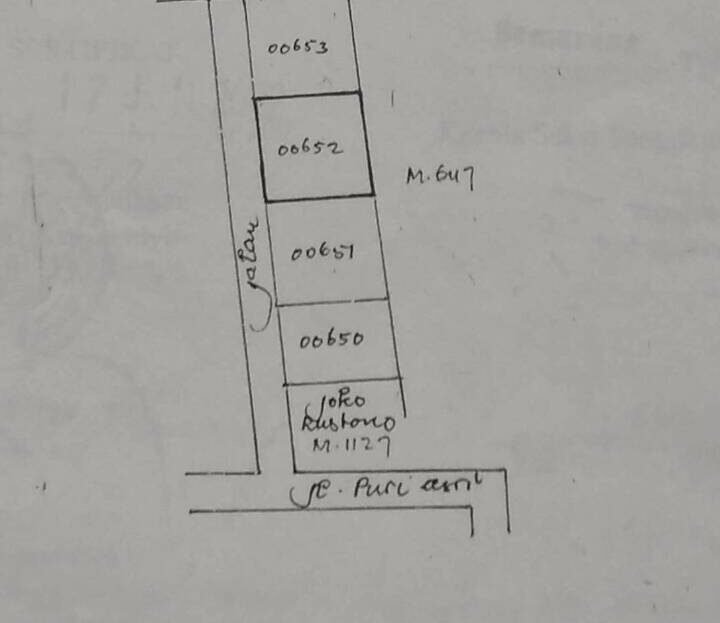 00653
00652
M.647
jalan
00651
00650
Joko
Kustono
M.1127
Jl. Puri asri